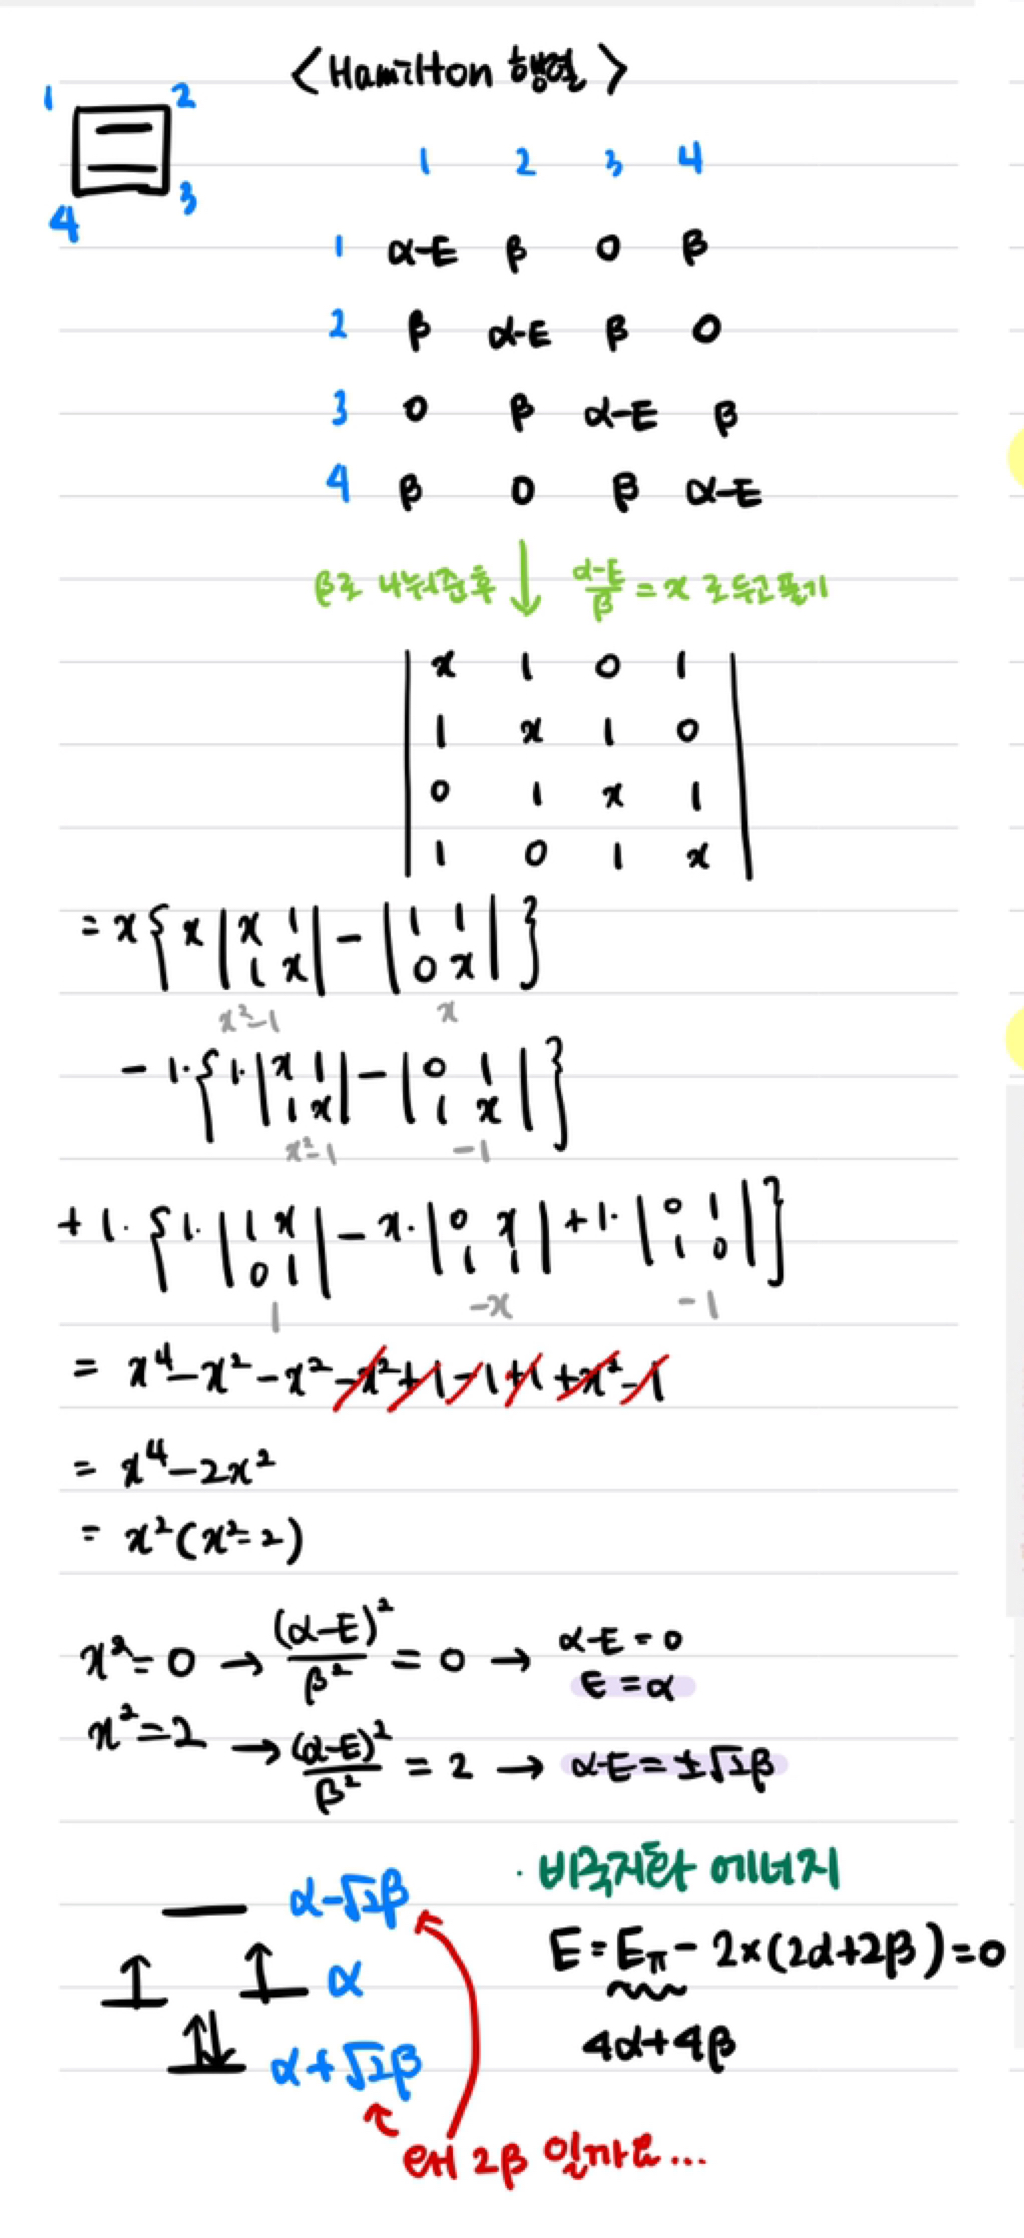 <Hamilton 행렬>
1 2
4 3
1 2 3 4
1 α-E β 0 β
2 β α-E β 0
3 0 β α-E β
4 β 0 β α-E
β로 나눠준후 ↓ α-E/β = x 로두고풀기
| x 1 0 1 |
| 1 x 1 0 |
| 0 1 x 1 |
| 1 0 1 x |
= x { x | x 1 ; 1 x | - | 1 1 ; 0 x | }
x²-1 x
- 1·{ 1·| x 1 ; 1 x | - | 0 1 ; 1 x | }
x²-1 -1
+ 1·{ 1·| 1 x ; 0 1 | - x·| 0 x ; 1 1 | + 1·| 0 1 ; 1 0 | }
1 -x -1
= x⁴-x²-x²-x²+1-1+1+x²-1
= x⁴-2x²
= x²(x²-2)
x²=0 → (α-E)²/β² = 0 → α-E=0
E=α
x²=2 → (α-E)²/β² = 2 → α-E=±√2β
· 비국지화 에너지
α-√2β
E=Eπ - 2×(2α+2β)=0
α
4α+4β
α+√2β
왜 2β 일까요...